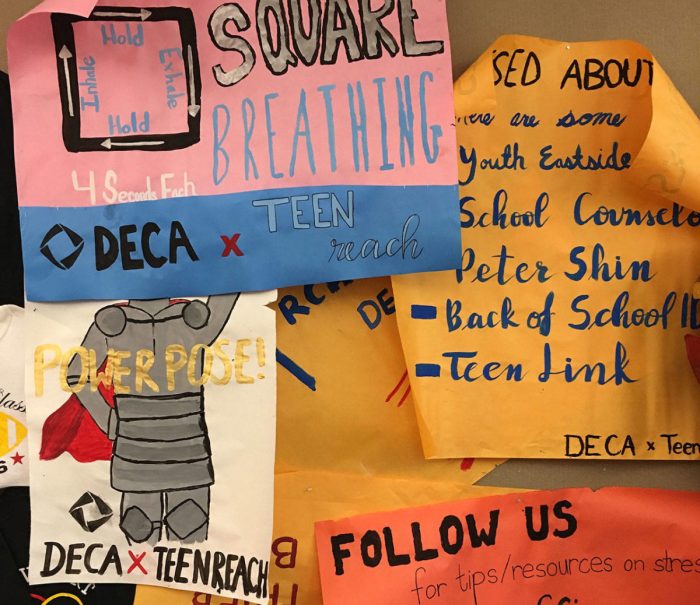 SQUARE
BREATHING
Hold
Inhale
Exhale
Hold
4 Seconds Each
DECA x TEEN
reach
SED ABOUT
are some
Youth Eastside
School Counselo
Peter Shin
- Back of School ID
- Teen Link
DECA x Teen
DE
POWER POSE!
DECA x TEENREACH
FOLLOW US
for tips/resources on stres